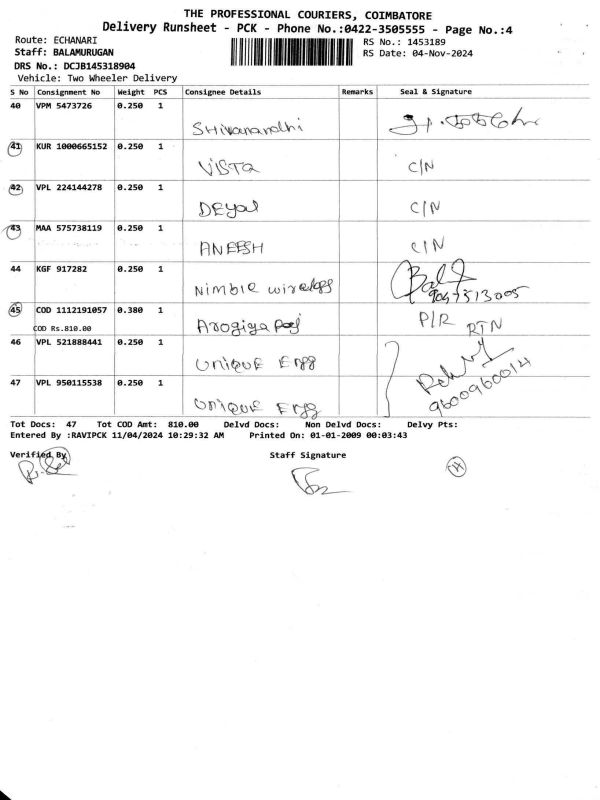 THE PROFESSIONAL COURIERS, COIMBATORE
Delivery Runsheet - PCK - Phone No.:0422-3505555 - Page No.:4
Route: ECHANARI
RS No.: 1453189
Staff: BALAMURUGAN
RS Date: 04-Nov-2024
DRS No.: DCJB145318904
Vehicle: Two Wheeler Delivery
S No Consignment No Weight PCS Consignee Details Remarks Seal & Signature
40 VPM 5473726 0.250 1
Shivanandhi
41 KUR 1000665152 0.250 1
VISTA C/N
42 VPL 224144278 0.250 1
DEYAL C/N
43 MAA 575738119 0.250 1
ANEESH C/N
44 KGF 917282 0.250 1
Nimble wireless
9047513005
45 COD 1112191057 0.380 1
COD Rs.810.00 Arogiya Raj P/R RTN
46 VPL 521888441 0.250 1
UNIQUE Engg
47 VPL 950115538 0.250 1
UNIQUE Engg 9600960014
Tot Docs: 47 Tot COD Amt: 810.00 Delvd Docs: Non Delvd Docs: Delvy Pts:
Entered By :RAVIPCK 11/04/2024 10:29:32 AM Printed On: 01-01-2009 00:03:43
Verified By Staff Signature